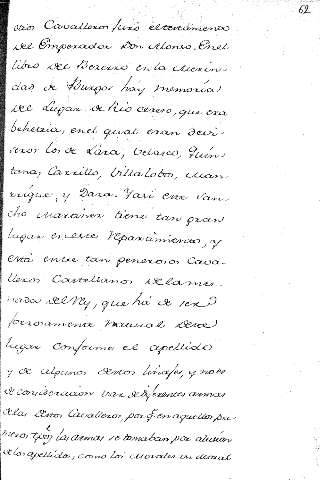 62
otros Cavalleros juró el testamento
del Emperador Don Alonso. En el
libro del Bezerro en la Merin-
dad de Burgos hay memoria
del Lugar de Rio cerezo, que era
behetria, en el qual eran devi-
seros los de Lara, Velasco, Quin-
tana, Carrillo, Villalobos, Man-
rrique, y Daza. Y asi este San-
cho Martinez tiene tan gran
lugar en este Repartimiento, y
está entre tan generosos Cava-
lleros Castellanos de la mes-
nada del Rey, que há de ser
forzosamente Natural deste
lugar conforme el apellido
y de algunos destos linajes, y no es
de consideracion usar de diferentes armas
de las destos Cavalleros, por q̃ en aquellos pri-
meros tpõs las armas se tomaban por alusion
de los apellidos, como los Morales un Moral